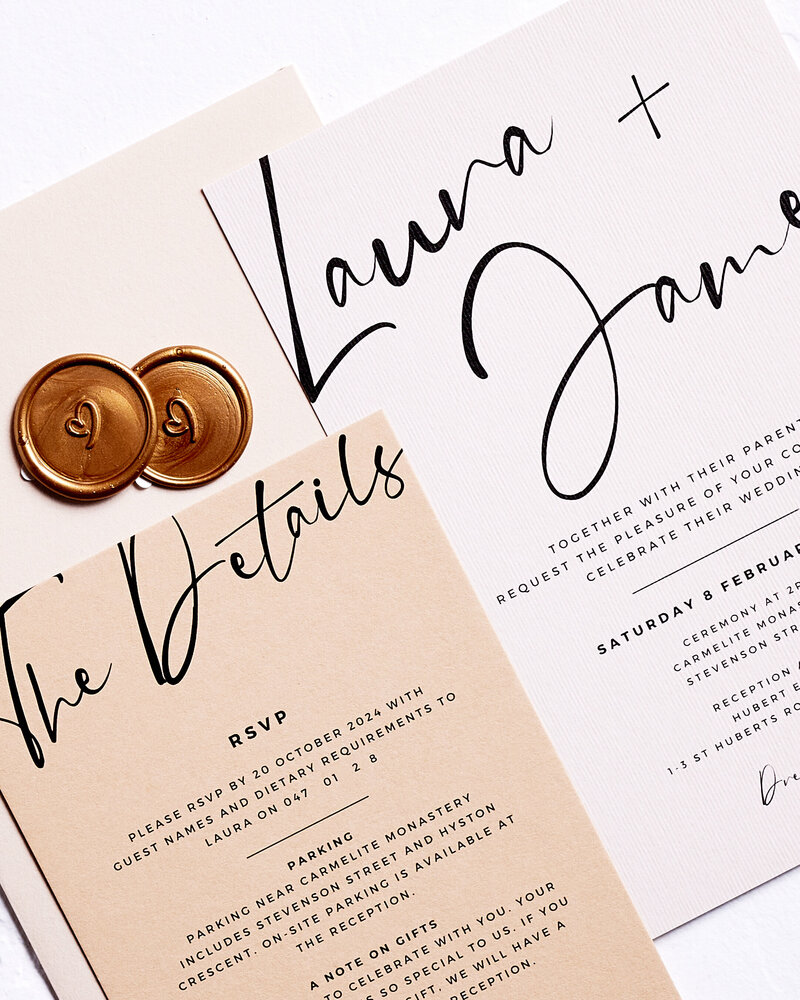 Laura +
Jame
TOGETHER WITH THEIR PARENT
REQUEST THE PLEASURE OF YOUR CO
CELEBRATE THEIR WEDDIN
SATURDAY 8 FEBRUAR
CEREMONY AT 2P
CARMELITE MONAS
STEVENSON STRE
RECEPTION A
HUBERT E
1-3 ST HUBERTS RO
Dre
The Details
RSVP
PLEASE RSVP BY 20 OCTOBER 2024 WITH
GUEST NAMES AND DIETARY REQUIREMENTS TO
LAURA ON 047 01 2 8
PARKING
PARKING NEAR CARMELITE MONASTERY
INCLUDES STEVENSON STREET AND HYSTON
CRESCENT. ON-SITE PARKING IS AVAILABLE AT
THE RECEPTION.
A NOTE ON GIFTS
TO CELEBRATE WITH YOU. YOUR
S SO SPECIAL TO US. IF YOU
GIFT, WE WILL HAVE A
RECEPTION.